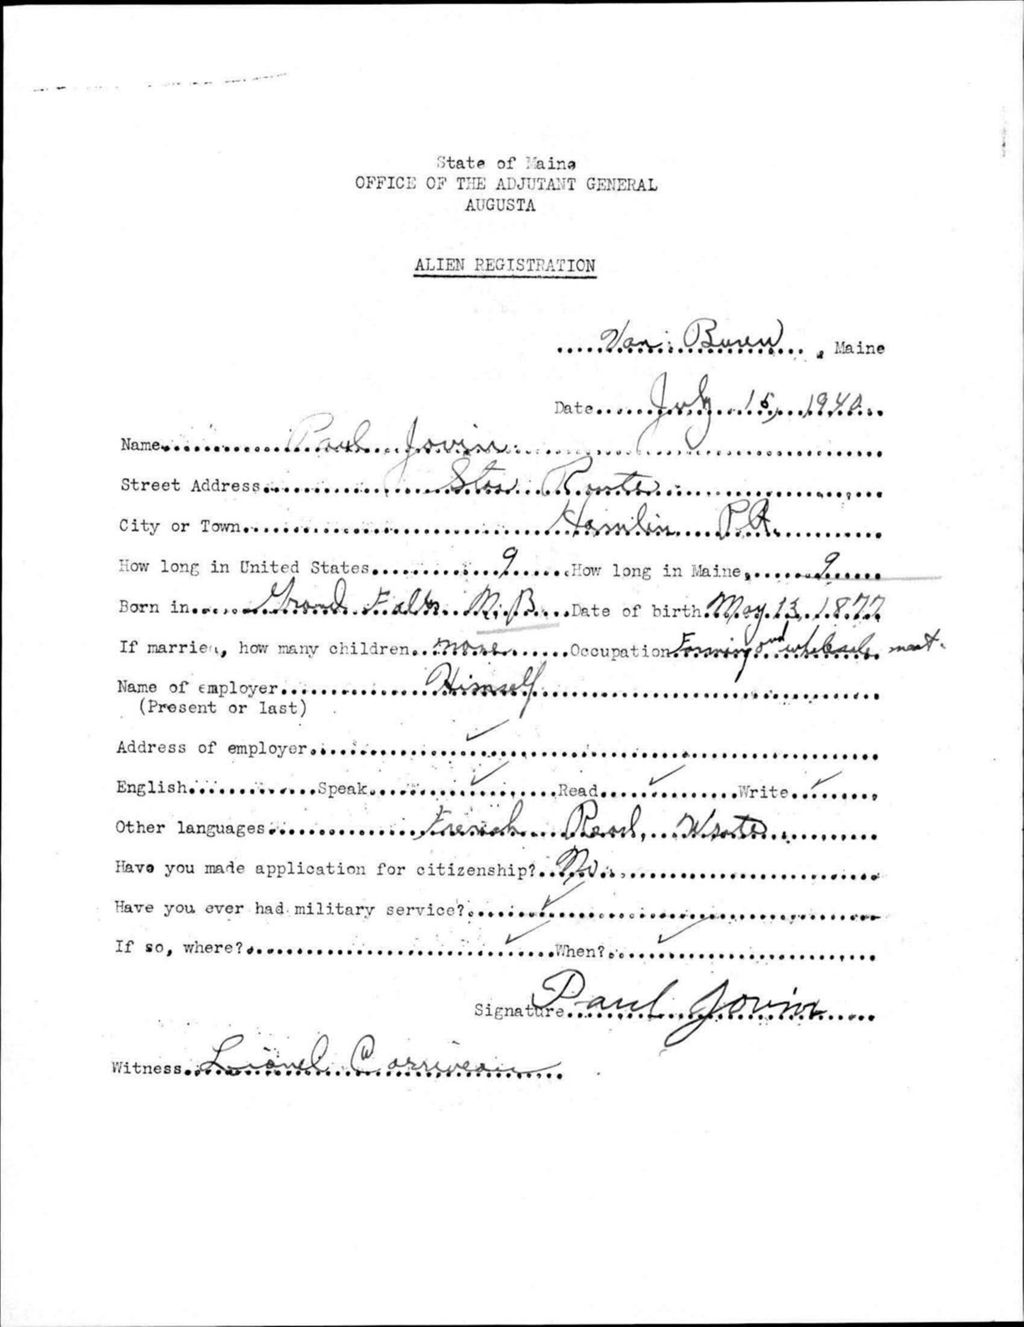 State of Maine
OFFICE OF THE ADJUTANT GENERAL
AUGUSTA
ALIEN REGISTRATION
Van Buren, Maine
Date July 15, 1940
Name Paul Jovin
Street Address Star Route
City or Town Hamlin Pl.
How long in United States 9 How long in Maine 9
Born in Grand Falls N.B. Date of birth May 13, 1877
If married, how many children none Occupation Farming and wholesale meat.
Name of employer Himself
(Present or last)
Address of employer ✓
English Speak ✓ Read ✓ Write ✓
Other languages French Read, Write
Have you made application for citizenship? No.
Have you ever had military service? ✓
If so, where? ✓ When? ✓
Signature Paul Jovin
Witness Lionel Corriveau